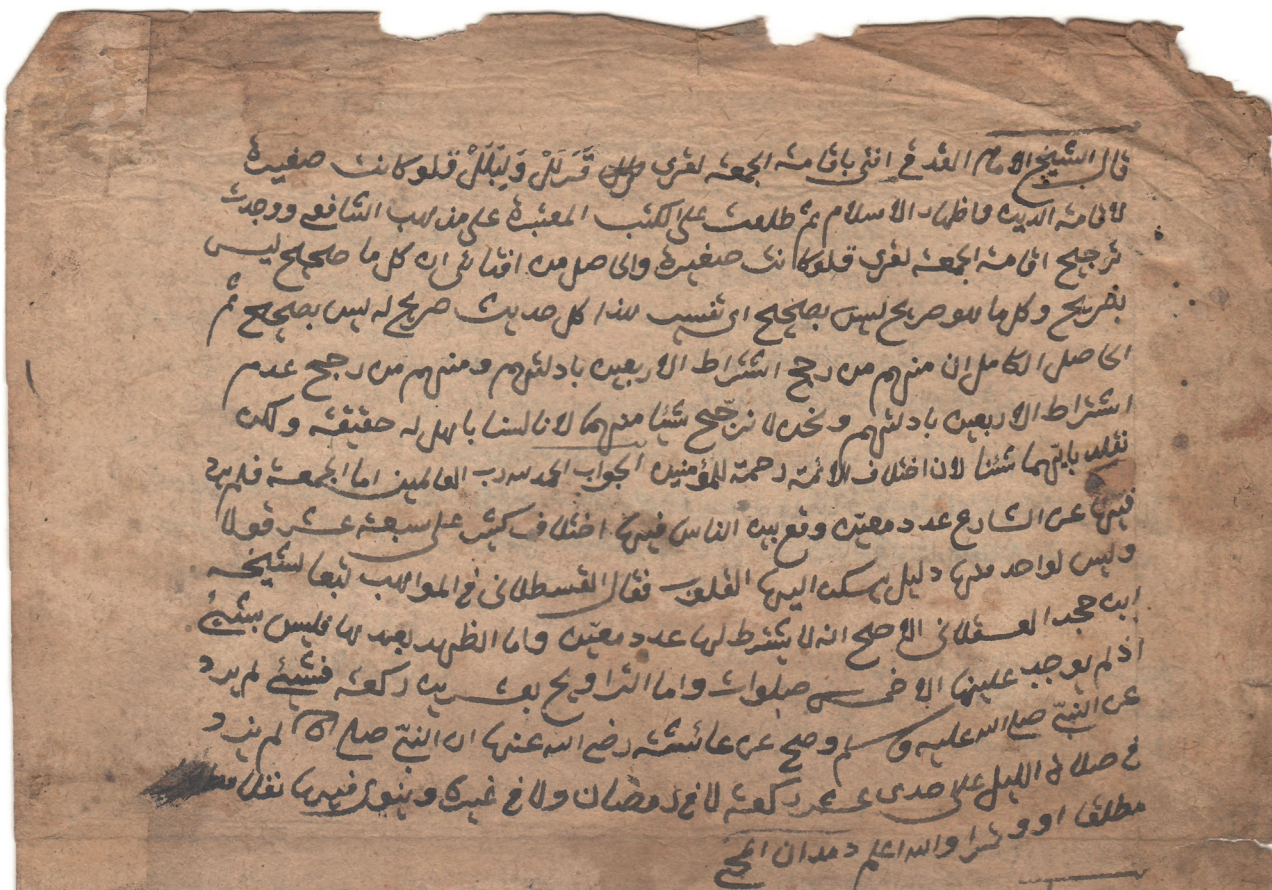 قال الشيخ الامام القدفي افتى باقامة الجمعة لقرى قَرَلَلْ وَلِبَلَلْ فلوكانت صغيرة
لاقامة الدين واظهار الاسلام ثم طلعت على الكتب المعتبرة على مذهب الشافعي ووجدت
ترجيح اقامة الجمعة لقرى فلوكانت صغيرة والحاصل من افتائى ان كل ما صحيح ليس
بصريح وكل ما هو صريح ليس بصحيح اى نفسب هذا كل حديث صريح له ليس بصحيح ثم
الحاصل الكامل ان منهم من رجح اشتراط الاربعين بادلتهم ومنهم من رجح عدم
اشتراط الاربعين بادلتهم ونحن لا نرجّح شئا منهما لانا لسنا باهل له حقيقة ولكن
نقلد بايّهما شئنا لان اختلاف الائمة رحمة للمؤمنين الجواب الحمد لله رب العالمين اما الجمعة فلم يرد
فيها عن الشارع عدد معيّن وقع بين الناس فيها اختلاف كثير على سبعة عشر قولا
وليس لواحد منها دليل يسكن اليها القلوب فقال القسطلانى في المواهب تبعا لشيخه
ابن حجر العسقلانى الاصح انه لا يشترط لها عدد معيّن واما الظهر بعدها فليس بشيئ
اذ لم يوجب علينا الا خمس صلوات واما التراويح بعشرين ركعة فشيئ لم يرد
عن النبيّ صلى الله عليه وسلم وصح عن عائشة رضي الله عنها ان النبيّ صلى الله لم يزد
في صلاة الليل على احدى عشر ركعة لا في رمضان ولا في غيره وينوى فيها نفلا
مطلقا او وترا والله اعلم